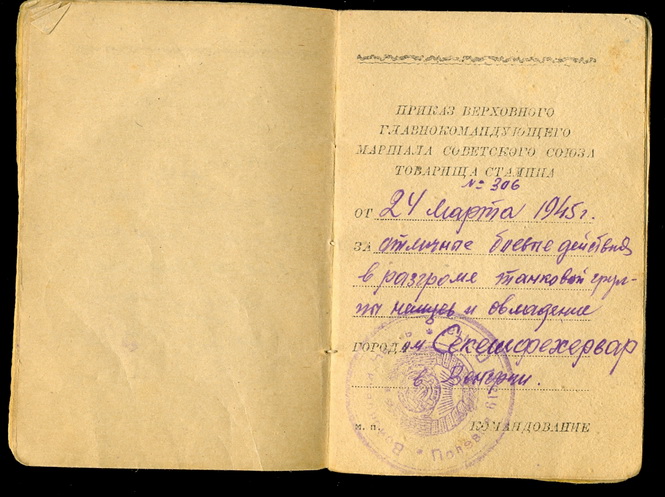 ПРИКАЗ ВЕРХОВНОГО
ГЛАВНОКОМАНДУЮЩЕГО
МАРШАЛА СОВЕТСКОГО СОЮЗА
ТОВАРИЩА СТАЛИНА
№ 306
ОТ 24 Марта 1945 г.
ЗА отличные боевые действия
в разгроме танковой груп-
пы немцев и овладение
ГОРОДОМ Секешфехервар
в Венгрии.
М. П. КОМАНДОВАНИЕ
Полевая